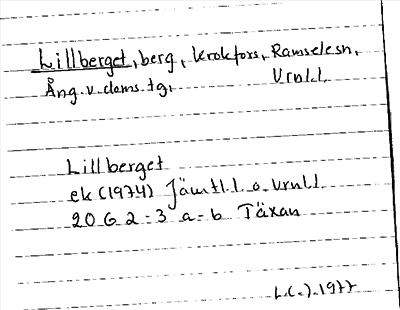 Lillberget, berg, Krokfors, Ramselesn,
Ång. v. doms. tg, Vrnl.l.
Lillberget
ek (1974) Jämtl.l. o. Vrnl.l.
20 G 2-3 a-b Täxan
1977